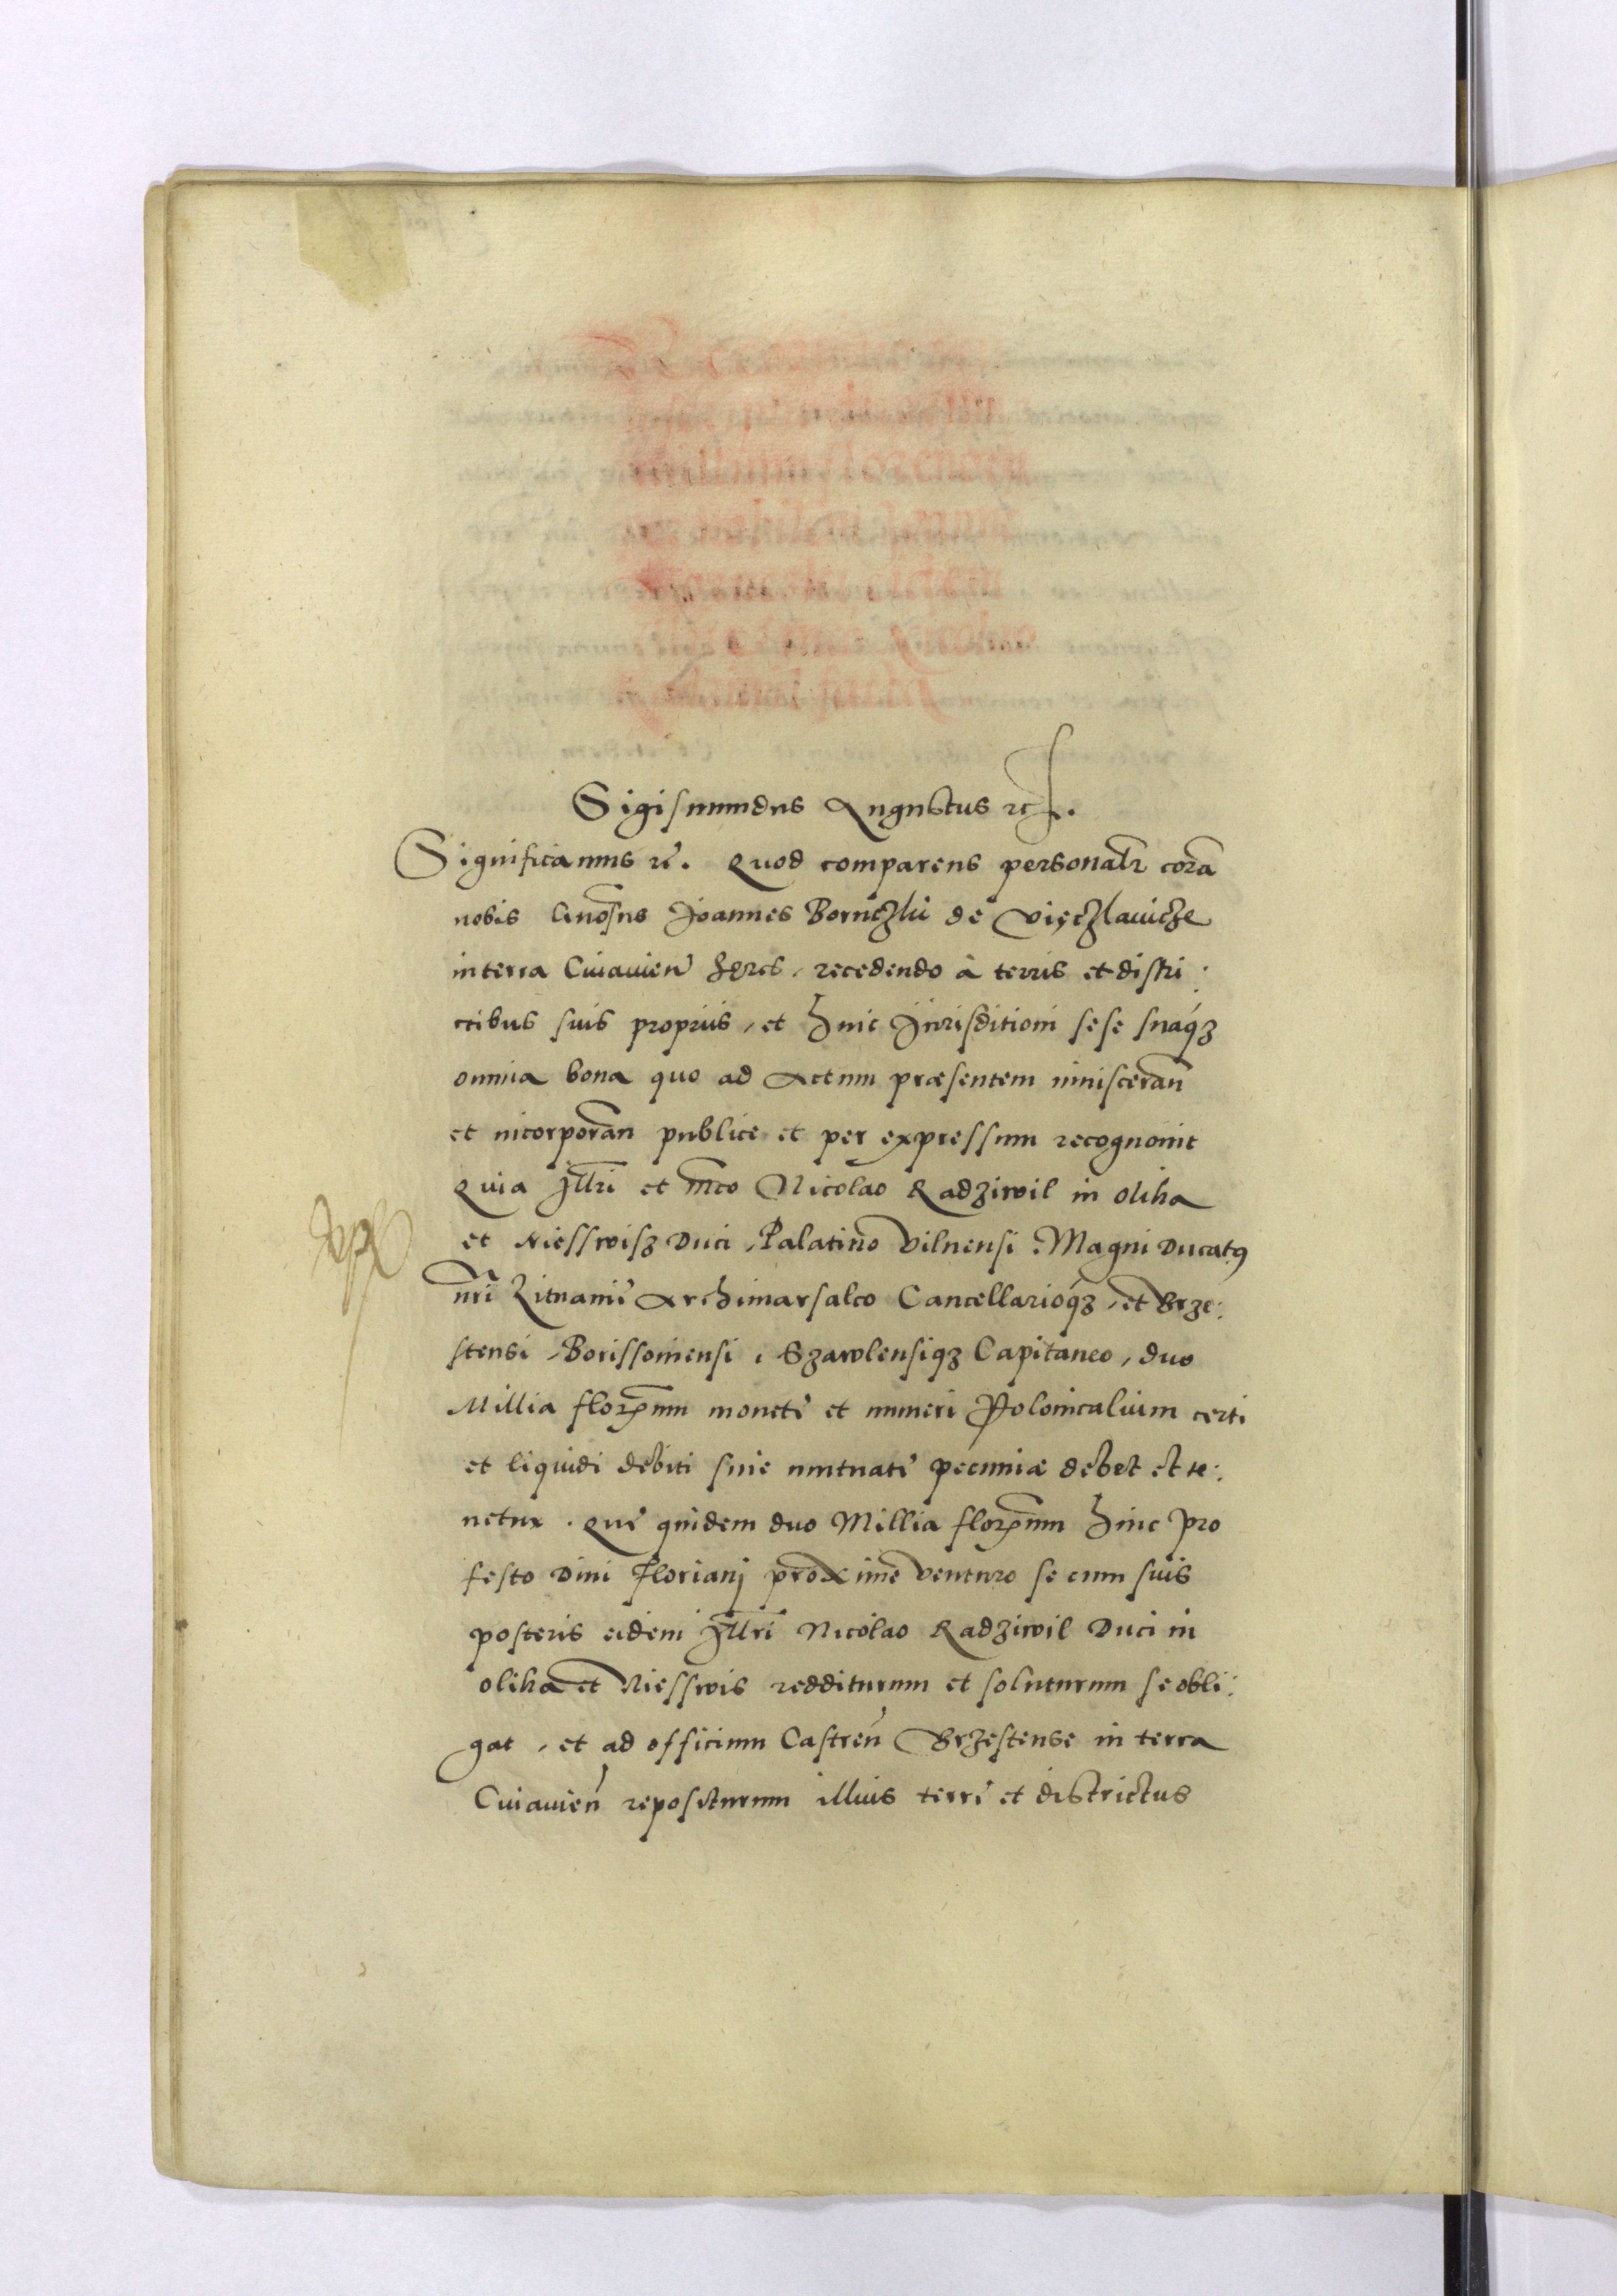 Sigismundus Augustus etc.
Significamus etc. Quod comparens personalr̃ corã
nobis Gnõsus Joannes Boruczki de Vięczlawicze
in terra Cuiavien̄ hęres, recedendo à terris et distri:
ctibus suis propriis, et huic Jurisditioni sese suaqꝫ
omnia bona quo ad Actum præsentem inviscerañ
et incorporañ publice et per expressum recognovit
Quia Jllri et mco Nicolao Radziwil in olika
et Niesswisz Duci, Palatino Vilnensi. Magni Ducatꝯ
nri̅ Litvanię Archimarsalco Cancellarioqꝫ, et Brze:
stensi, Borissoviensi, Szawlensiqꝫ Capitaneo, duo
Millia floꝝenum monetę et numeri Polonicalium certi
et liquidi debiti sive mutuatę pecuniæ debet et te:
netur. Quę quidem duo Millia floꝝenum hinc pro
festo Divi Florianj proxime venturo se cum suis
posteris eidem Jllri Nicolao Radziwil Duci in
olika et Niesswis redditurum et soluturum se obli:
gat, et ad officium Castren̄ Brzestense in terra
Cuiavien̄ repositurum illius terrę et districtus